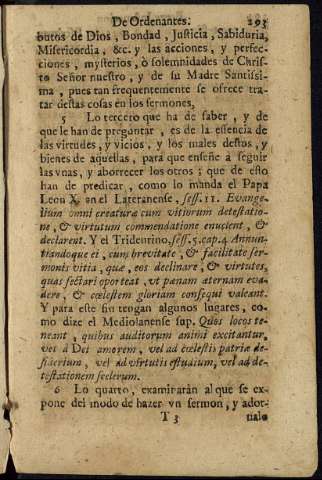 De Ordenantes. 293
butos de Dios, Bondad, Justicia, Sabiduria,
Misericordia, &c. y las acciones, y perfec-
ciones, mysterios, ò solemnidades de Chris-
to Señor nuestro, y de su Madre Santissi-
ma, pues tan frequentemente se ofrece tra-
tar destas cosas en los sermones,
5 Lo tercero que ha de saber, y de
que le han de preguntar, es de la essencia de
las virtudes, y vicios, y los males destos, y
bienes de aquellas, para que enseñe a seguir
las vnas, y aborrecer los otros; que de esto
han de predicar, como lo manda el Papa
Leon X. en el Lateranense, sess. 11. Evange-
lium omni creaturæ cum vitiorum detestatio-
ne, & virtutum commendatione enucient, &
declarent. Y el Tridentino, sess. 5. cap. 4. Annun-
tiandoque et, cum brevitate, & facilitate ser-
monis vitia, quæ, eos declinare, & virtutes,
quas sectari oporteat, vt pœnam æternam eva-
dere, & cœlestem gloriam consequi valeant.
Y para este fin tengan algunos lugares, co-
mo dize el Mediolanense sup. Quos locos te-
neant, quibus auditorum animi excitantur,
vel à Dei amorem, vel ad cœlestis patriæ de-
siderium, vel ad virtutis estudium, vel ad de-
testationem scelerum.
6 Lo quarto, examiraràn al que se ex-
pone del modo de hazer vn sermon, y ador-
T 3 nalo